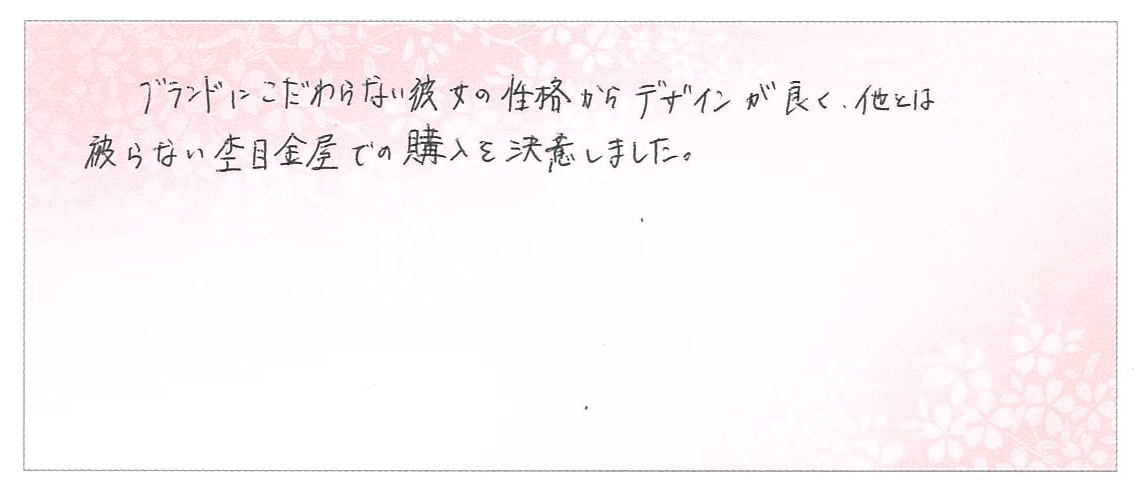 ブランドにこだわらない彼女の性格からデザインが良く、他とは
被らない杢目金屋での購入を決意しました。